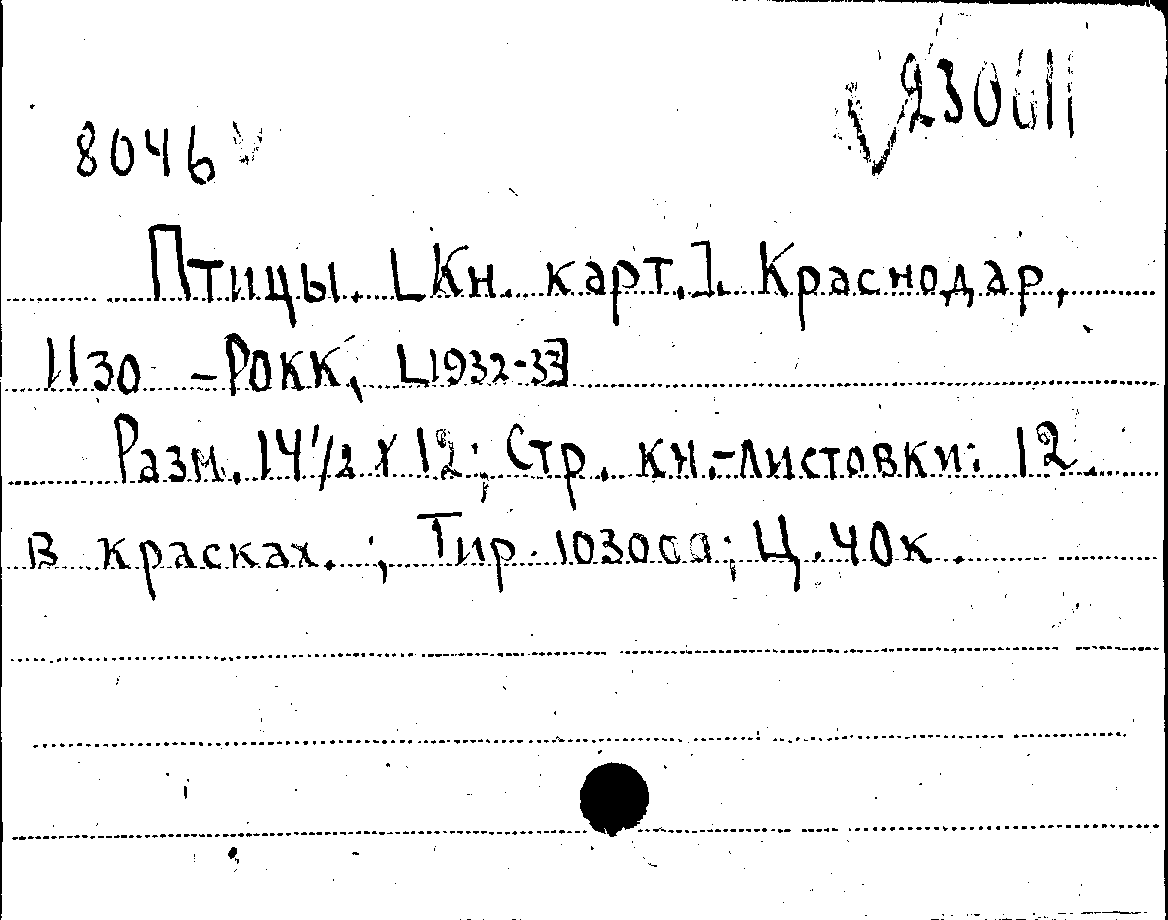 230611
8046
Птицы. [Кн. карт.]. Краснодар,
Изо - РОКК, [1932-33]
Разм. 14 1/2 x 12; Стр. кн.-листовки: 12.
в красках. ; Тир. 103000; Ц. 40к.